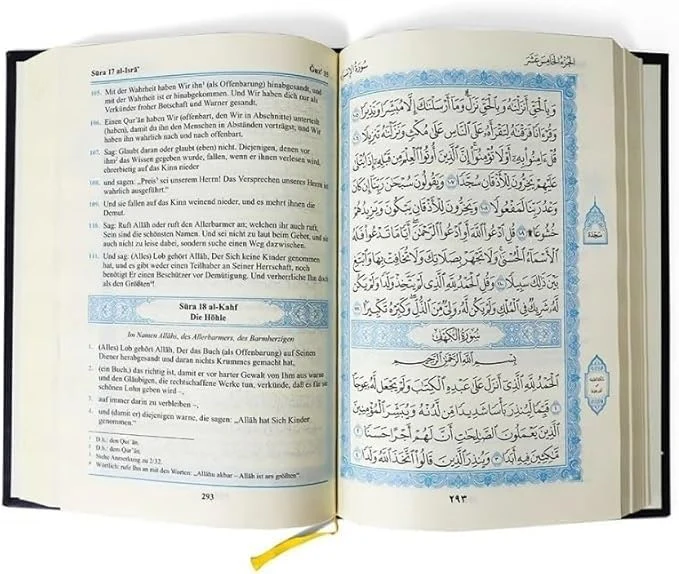 Sūra 17 al-Isrā’
Ǧuz’ 15
105. Mit der Wahrheit haben Wir ihn¹ (als Offenbarung) hinabgesandt, und
mit der Wahrheit ist er hinabgekommen. Und Wir haben dich nur als
Verkünder froher Botschaft und Warner gesandt.
106. Einen Qur’ān haben Wir (offenbart, den Wir in Abschnitte) unterteilt
(haben), damit du ihn den Menschen in Abständen vorträgst, und Wir
haben ihn wahrlich nach und nach offenbart.
107. Sag: Glaubt daran oder glaubt (eben) nicht. Diejenigen, denen vor
ihm² das Wissen gegeben wurde, fallen, wenn er ihnen verlesen wird,
ehrerbietig auf das Kinn nieder
108. und sagen: „Preis³ sei unserem Herrn! Das Versprechen unseres Herrn ist
wahrlich ausgeführt.“
109. Und sie fallen auf das Kinn weinend nieder, und es mehrt ihnen die
Demut.
110. Sag: Ruft Allāh oder ruft den Allerbarmer an; welchen ihr auch ruft,
Sein sind die schönsten Namen. Und sei nicht zu laut beim Gebet, und sei
auch nicht zu leise dabei, sondern suche einen Weg dazwischen.
111. Und sag: (Alles) Lob gehört Allāh, Der Sich keine Kinder genommen
hat, und es gibt weder einen Teilhaber an Seiner Herrschaft, noch
benötigt Er einen Beschützer vor Demütigung. Und verherrliche Ihn doch
als den Größten⁴!
Sūra 18 al-Kahf
Die Höhle
Im Namen Allāhs, des Allerbarmers, des Barmherzigen
1. (Alles) Lob gehört Allāh, Der das Buch (als Offenbarung) auf Seinen
Diener herabgesandt und daran nichts Krummes gemacht hat,
2. (ein Buch,) das richtig ist, damit er vor harter Gewalt von Ihm aus warne
und den Gläubigen, die rechtschaffene Werke tun, verkünde, daß es für sie
schönen Lohn geben wird –,
3. auf immer darin zu verbleiben –,
4. und (damit er) diejenigen warne, die sagen: „Allāh hat Sich Kinder
genommen.“
¹ D.h.: den Qur’ān.
² D.h.: den Qur’ān.
³ Siehe Anmerkung zu 2/32.
⁴ Wörtlich: rufe Ihn an mit den Worten: „Allāhu akbar – Allāh ist am größten“.
293
الجزء الخامس عشر
سورة الإسراء
وَبِالْحَقِّ أَنزَلْنَاهُ وَبِالْحَقِّ نَزَلَ وَمَا أَرْسَلْنَاكَ إِلَّا مُبَشِّرًا وَنَذِيرًا ١٠٥
وَقُرْءَانًا فَرَقْنَاهُ لِتَقْرَأَهُ عَلَى النَّاسِ عَلَى مُكْثٍ وَنَزَّلْنَاهُ تَنزِيلًا ١٠٦
قُلْ ءَامِنُوا بِهِ أَوْ لَا تُؤْمِنُوا إِنَّ الَّذِينَ أُوتُوا الْعِلْمَ مِن قَبْلِهِ إِذَا يُتْلَى
عَلَيْهِمْ يَخِرُّونَ لِلْأَذْقَانِ سُجَّدًا ١٠٧ وَيَقُولُونَ سُبْحَانَ رَبِّنَا إِن كَانَ
وَعْدُ رَبِّنَا لَمَفْعُولًا ١٠٨ وَيَخِرُّونَ لِلْأَذْقَانِ يَبْكُونَ وَيَزِيدُهُمْ
خُشُوعًا ۩ ١٠٩ قُلِ ادْعُوا اللَّهَ أَوِ ادْعُوا الرَّحْمَنَ أَيًّا مَّا تَدْعُوا فَلَهُ
الْأَسْمَاءُ الْحُسْنَى وَلَا تَجْهَرْ بِصَلَاتِكَ وَلَا تُخَافِتْ بِهَا وَابْتَغِ
بَيْنَ ذَلِكَ سَبِيلًا ١١٠ وَقُلِ الْحَمْدُ لِلَّهِ الَّذِي لَمْ يَتَّخِذْ وَلَدًا وَلَمْ يَكُن
لَّهُ شَرِيكٌ فِي الْمُلْكِ وَلَمْ يَكُن لَّهُ وَلِيٌّ مِّنَ الذُّلِّ وَكَبِّرْهُ تَكْبِيرًا ١١١
سُورَةُ الْكَهْفِ
بِسْمِ اللَّهِ الرَّحْمَنِ الرَّحِيمِ
الْحَمْدُ لِلَّهِ الَّذِي أَنزَلَ عَلَى عَبْدِهِ الْكِتَابَ وَلَمْ يَجْعَل لَّهُ عِوَجًا ١
قَيِّمًا لِّيُنذِرَ بَأْسًا شَدِيدًا مِّن لَّدُنْهُ وَيُبَشِّرَ الْمُؤْمِنِينَ
الَّذِينَ يَعْمَلُونَ الصَّالِحَاتِ أَنَّ لَهُمْ أَجْرًا حَسَنًا ٢
مَّاكِثِينَ فِيهِ أَبَدًا ٣ وَيُنذِرَ الَّذِينَ قَالُوا اتَّخَذَ اللَّهُ وَلَدًا ٤
سجدة
٢٩٣